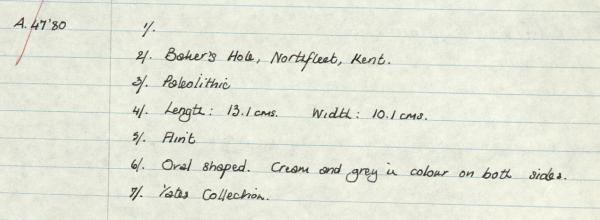 A.47'80 1/.
2/. Baker's Hole, Northfleet, Kent.
3/. Paleolithic
4/. Length: 13.1 cms. Width: 10.1 cms.
5/. Flint
6/. Oval shaped. Cream and grey in colour on both sides.
7/. Yates Collection.